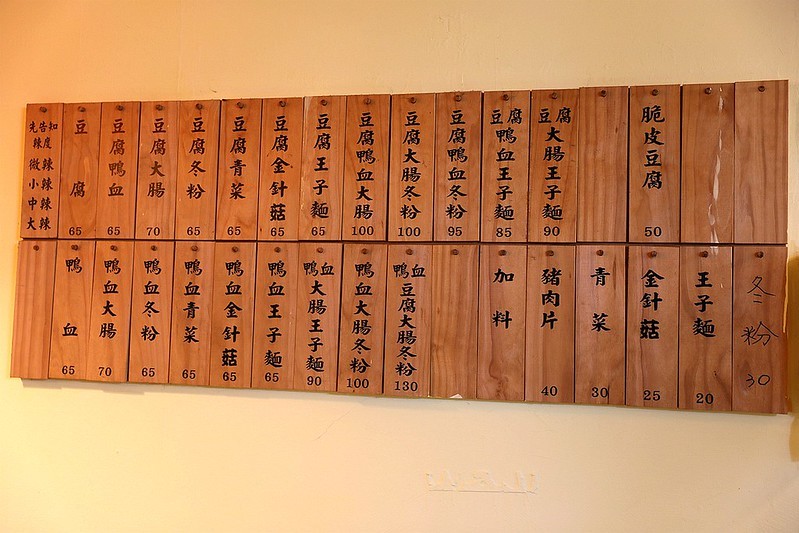 先告知
辣度
微辣
小辣
中辣
大辣
豆腐 65
豆腐鴨血 65
豆腐大腸 70
豆腐冬粉 65
豆腐青菜 65
豆腐金針菇 65
豆腐王子麵 65
豆腐鴨血大腸 100
豆腐大腸冬粉 100
豆腐鴨血冬粉 95
豆腐鴨血王子麵 85
豆腐大腸王子麵 90
脆皮豆腐 50
鴨血 65
鴨血大腸 70
鴨血冬粉 65
鴨血青菜 65
鴨血金針菇 65
鴨血王子麵 65
鴨血大腸王子麵 90
鴨血大腸冬粉 100
鴨血豆腐大腸冬粉 130
加料
豬肉片 40
青菜 30
金針菇 25
王子麵 20
冬粉 30